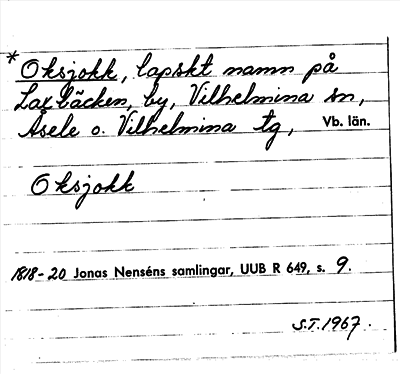 * Oksjokk, lapskt namn på
Laxbäcken, by, Vilhelmina sn,
Åsele o. Vilhelmina tg, Vb. län.
Oksjokk
1818-20 Jonas Nenséns samlingar, UUB R 649, s. 9.
S.T. 1967.